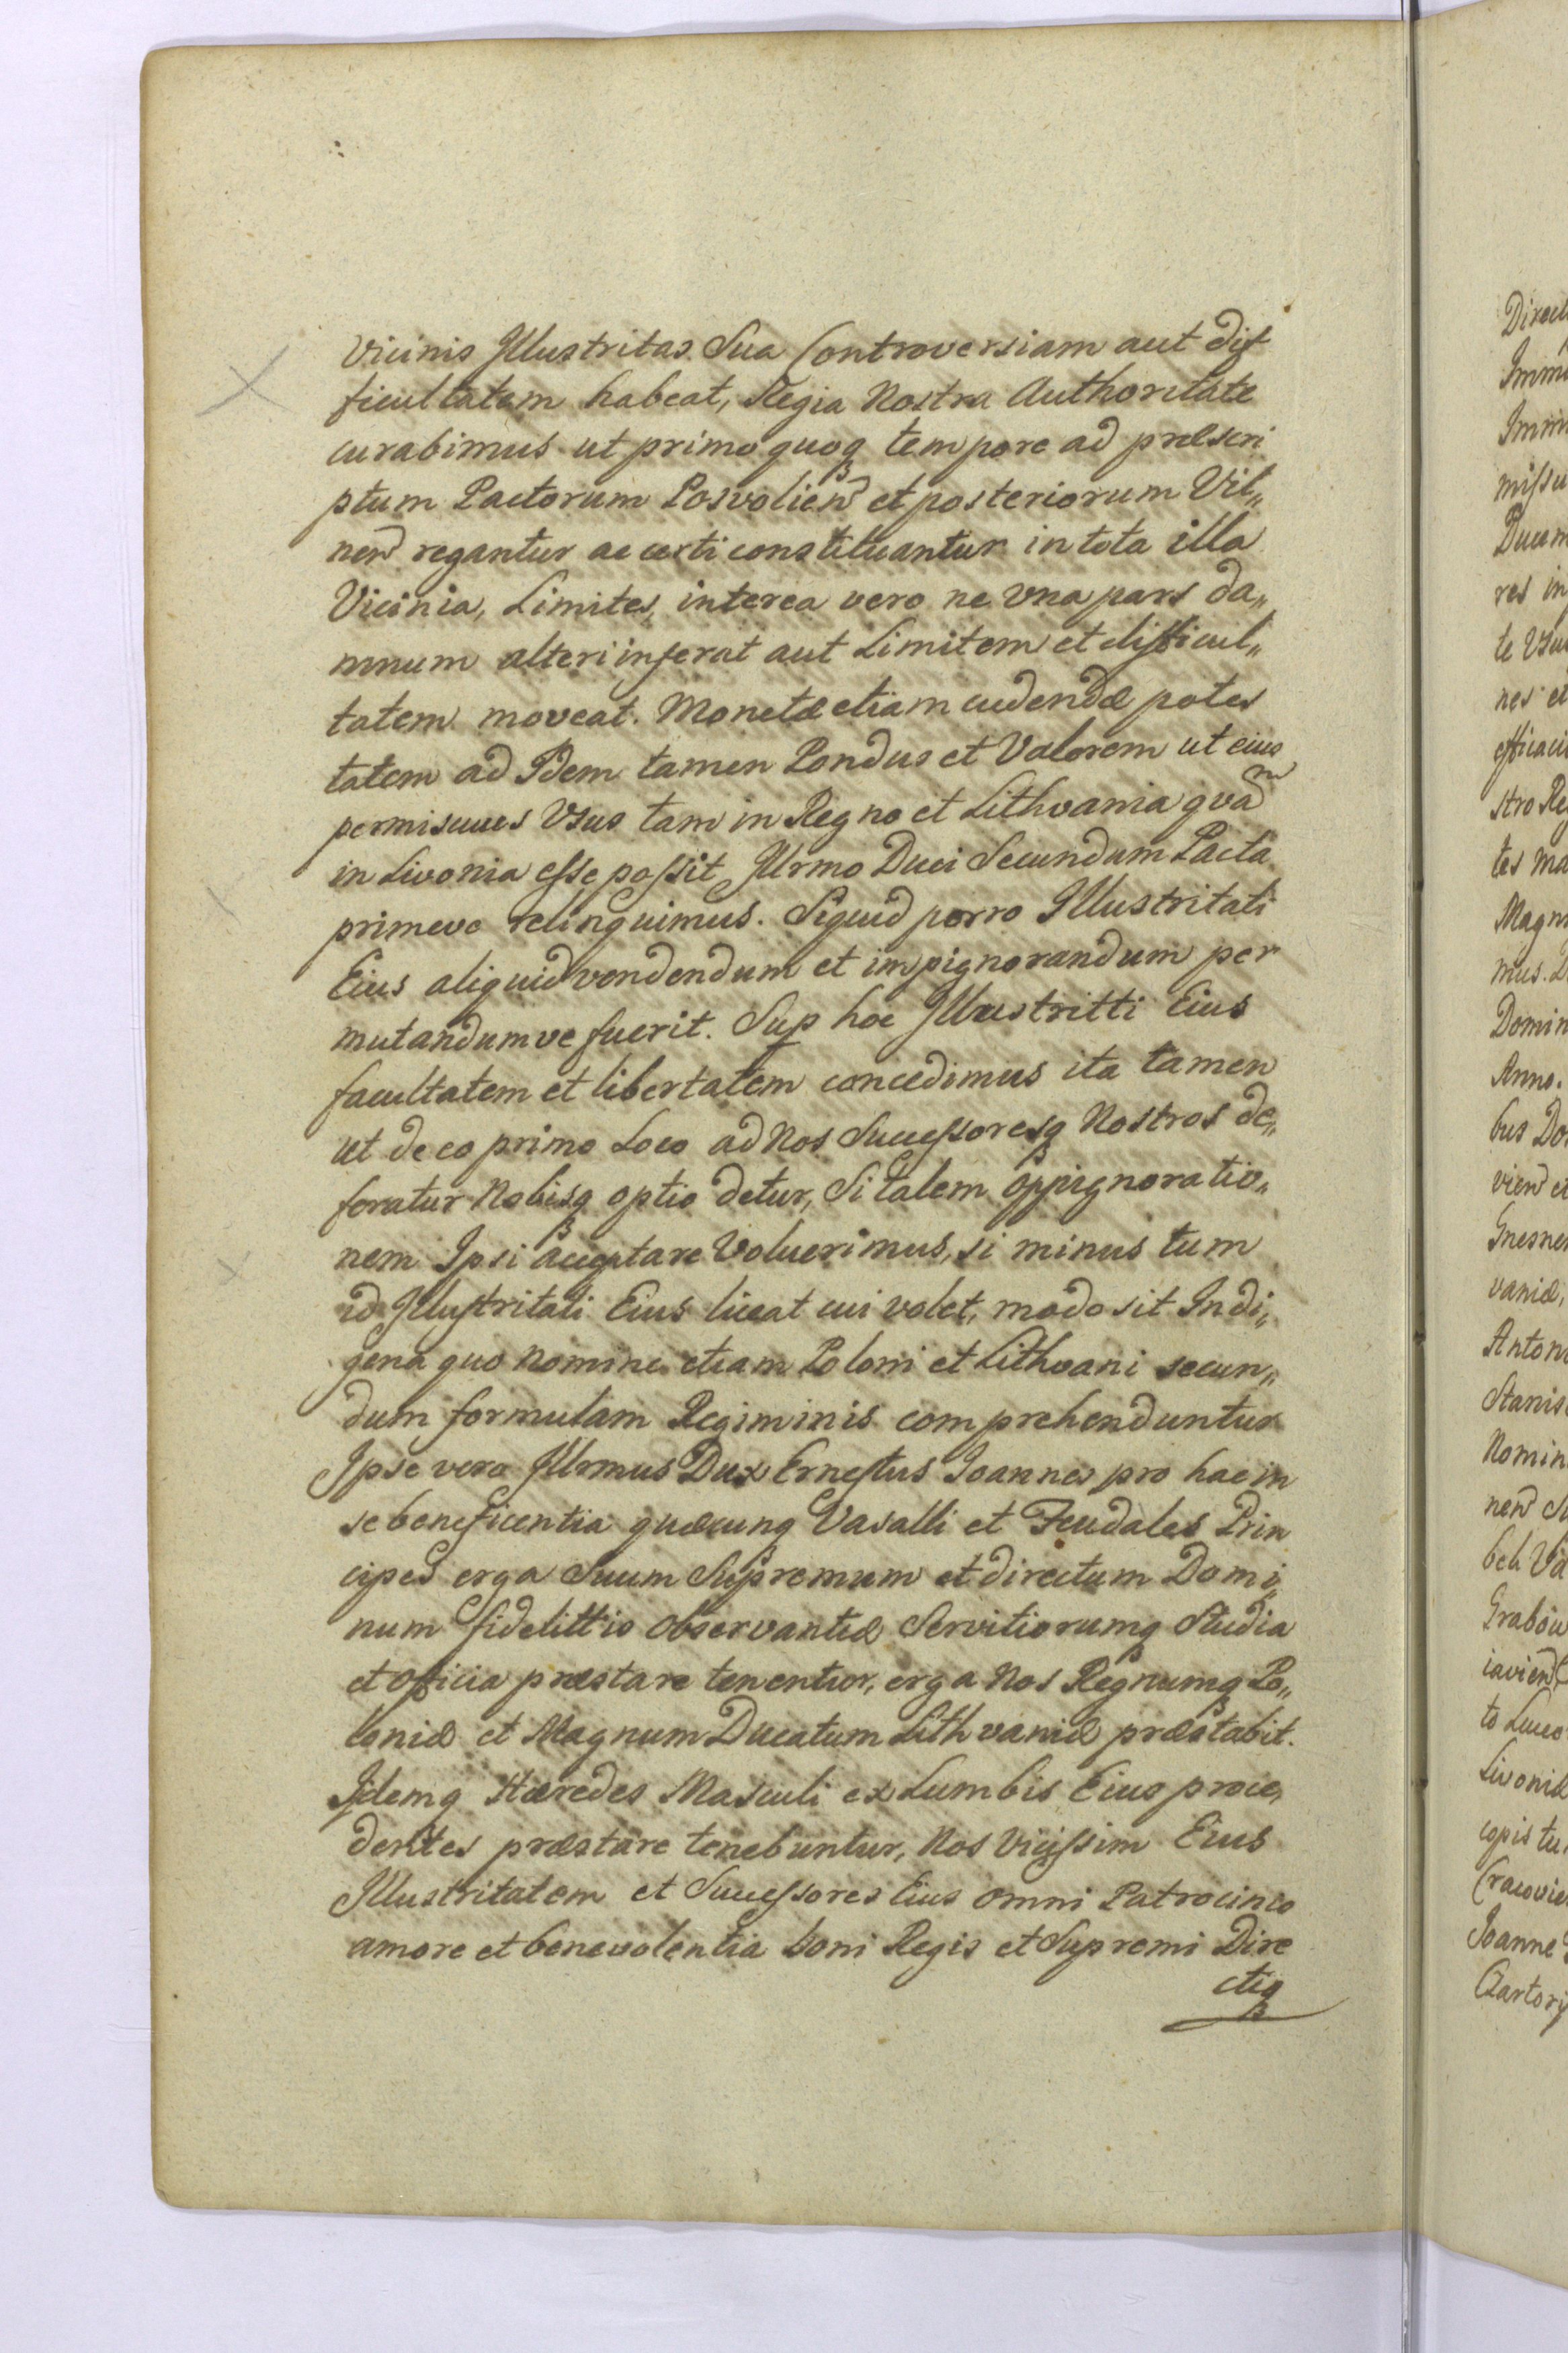 Vicinis Jllustritas Sua Controversiam aut dif
ficultatem habeat, Regia Nostra Authoritate
curabimus ut primo quoq tempore ad præscri
ptum Pactorum Posvolien et posteriorum Vil„
nen regantur ac certi constituantur in tota illa
Vicinia, Limites, interea vero ne Vna pars da„
mnum alteri inferat aut Limitem et difficul„
tatem moveat. Monetæ etiam cudendæ potes
tatem ad Jdem tamen Pondus et Valorem ut eius
permisuues Vsus tam in Regno et Lithvania qvam
in Livonia esse possit Jllrmo Duci Secundum Pacta
primeve relinquimus. Siquid porro Jllustritati
Eius aliquid vendendum et impignorandum per
mutandumve fuerit. Sup hoc Jllustritti Eius
facultatem et libertatem concedimus ita tamen
ut de eo primo Loco ad Nos Successoresq Nostros de„
feratur Nobisq optio detur, Si talem oppignoratio„
nem Jpsi acceptare Voluerimus, si minus tum
id Jllustritati Eius liceat cui volet, modo sit Jndi„
gena quo nomine etiam Poloni et Lithvani secun„
dum formulam Regiminis comprehenduntur
Jpse vero Jllrmus Dux Ernestus Joannes pro hac in
se beneficentia quæcunq Vasalli et Feudales Prin
cipes erga Suum Supremum et directum Domi„
num fidelittis observantiæ Servitiorumq Studia
et officia præstare tenentur, erga Nos Regnumq Po„
loniæ et Magnum Ducatum Lithvaniæ præstabit.
Jdemq Hæredes Masculi ex Lumbis Eius proce„
dentes præstare tenebuntur, Nos Vicissim Eius
Jllustritatem et Successores Eius omni Patrocinio
amore et benevolentia boni Regis et Supremi Dire
ctiq
Direct
Imm
Imm
missu
Ducem
res in
te Vsu
nes et
efficaci
stro Re
tes ma
Magn
mus.
Domin
Anno.
bus Do
vien et
Gnesne
vaniæ,
Anton
Stanis
Nomin
nen
beli Va
Grabow
iavien
to Luceo
Livoniæ
copis tu
Cracovie
Joanne
Czartory